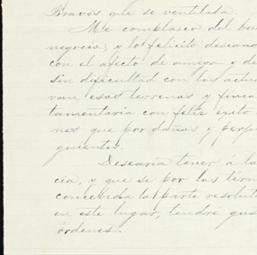 Bravos que se ventilada.
Me complazco del bue
negocio, y lo felicito deseand
con el afecto de amigo y de
sin dificultad con las actua
van esas terrenas y finca
tamentaria con feliz éxito
nes que por daños y perju
guientes.
Desearia tener á la
cia, y que se por las térm
concebida la parte resolut
en este lugar, tendré gus
órdenes.